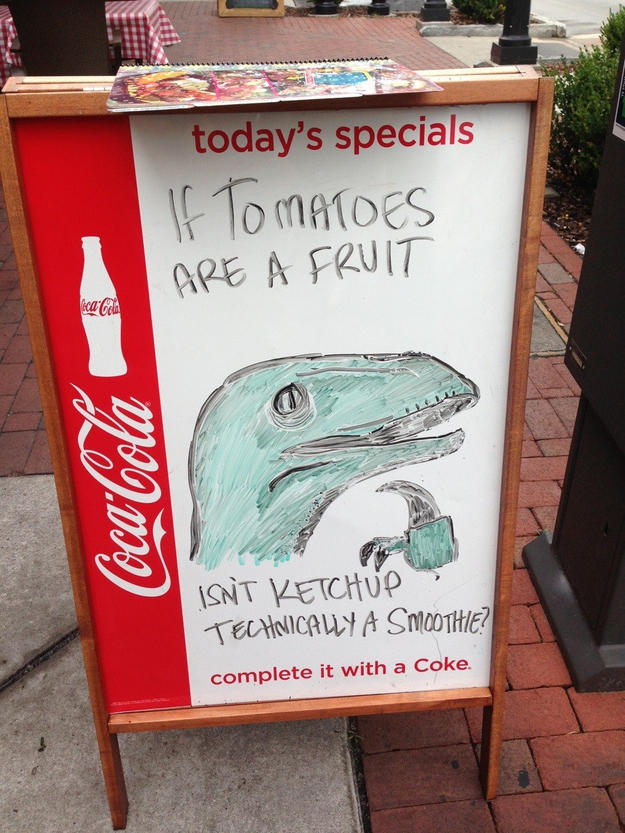 today's specials
IF TOMATOES
ARE A FRUIT
Coca-Cola
Coca-Cola®
ISN'T KETCHUP
TECHNICALLY A SMOOTHIE?
complete it with a Coke.